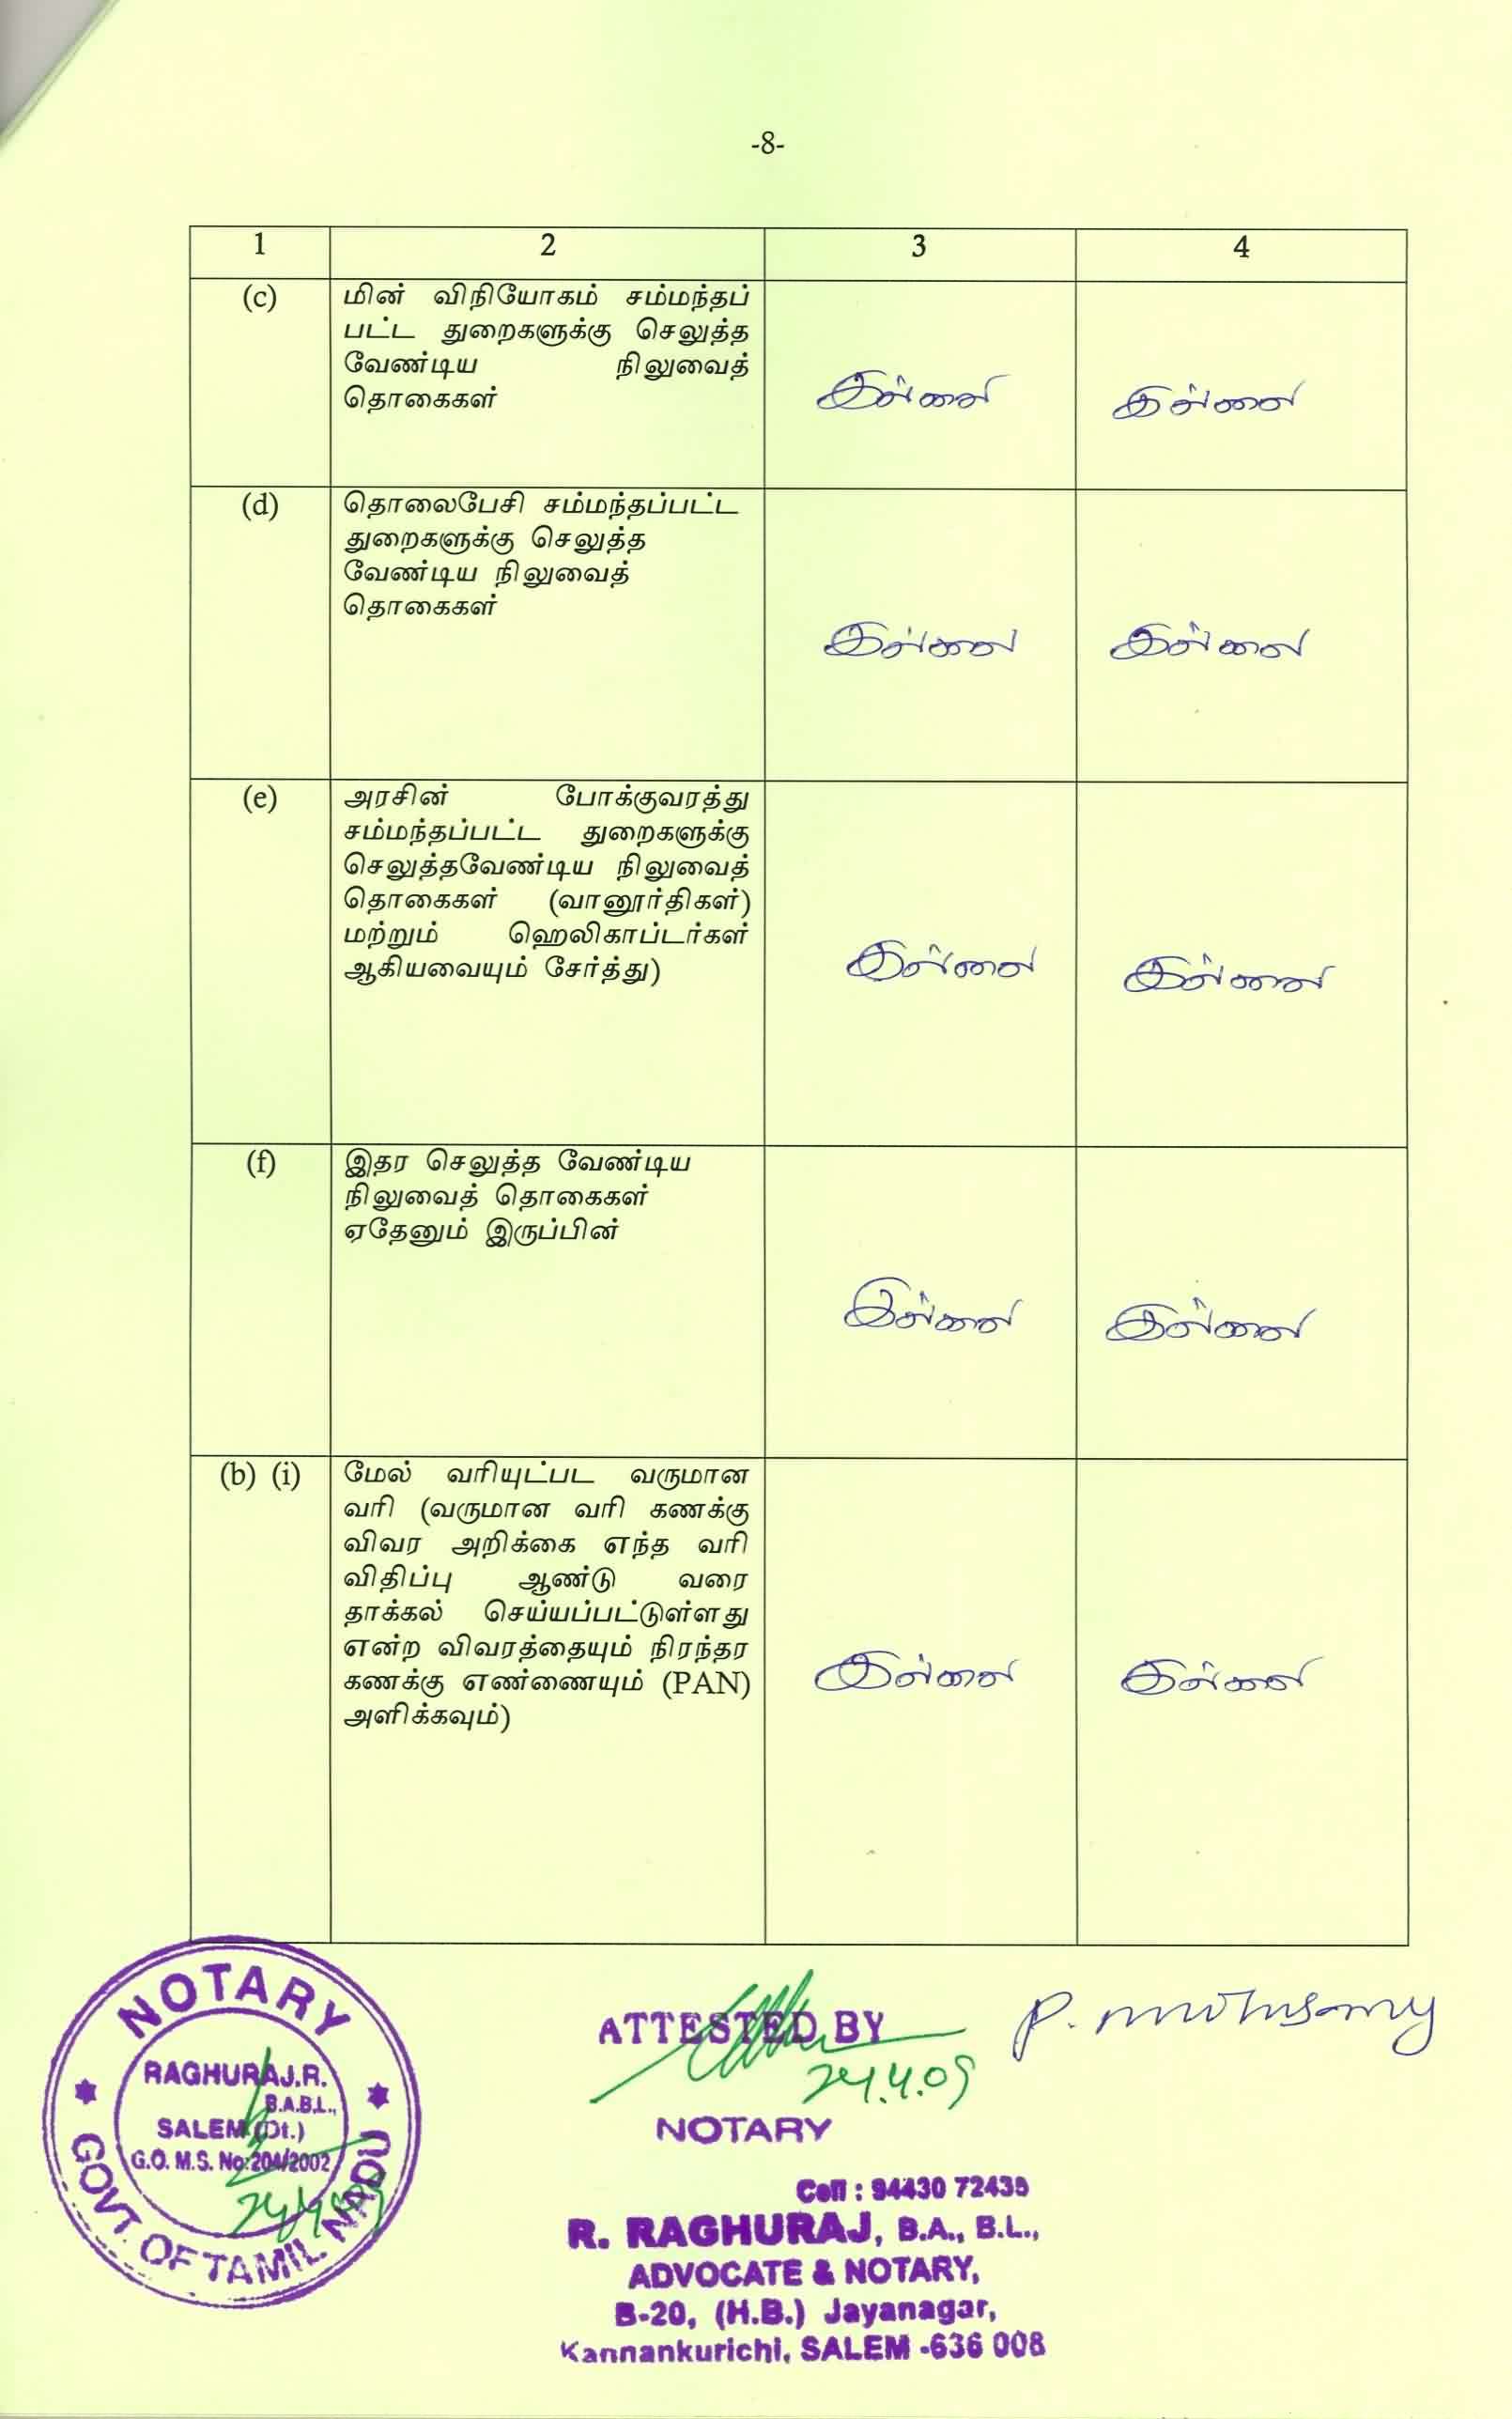 -8-
1 2 3 4
(c) மின் விநியோகம் சம்மந்தப்
பட்ட துறைகளுக்கு செலுத்த
வேண்டிய நிலுவைத்
தொகைகள்
இல்லை இல்லை
(d) தொலைபேசி சம்மந்தப்பட்ட
துறைகளுக்கு செலுத்த
வேண்டிய நிலுவைத்
தொகைகள்
இல்லை இல்லை
(e) அரசின் போக்குவரத்து
சம்மந்தப்பட்ட துறைகளுக்கு
செலுத்தவேண்டிய நிலுவைத்
தொகைகள் (வானூர்திகள்)
மற்றும் ஹெலிகாப்டர்கள்
ஆகியவையும் சேர்த்து)
இல்லை இல்லை
(f) இதர செலுத்த வேண்டிய
நிலுவைத் தொகைகள்
ஏதேனும் இருப்பின்
இல்லை இல்லை
(b) (i) மேல் வரியுட்பட வருமான
வரி (வருமான வரி கணக்கு
விவர அறிக்கை எந்த வரி
விதிப்பு ஆண்டு வரை
தாக்கல் செய்யப்பட்டுள்ளது
என்ற விவரத்தையும் நிரந்தர
கணக்கு எண்ணையும் (PAN)
அளிக்கவும்)
இல்லை இல்லை
NOTARY
RAGHURAJ.R.
B.A.B.L.,
SALEM (Dt.)
G.O. M.S. No:204/2002
GOVT. OF TAMIL NADU
ATTESTED BY
24.4.09
NOTARY
Cell : 94430 72439
R. RAGHURAJ, B.A., B.L.,
ADVOCATE & NOTARY,
B-20, (H.B.) Jayanagar,
Kannankurichi, SALEM -636 008